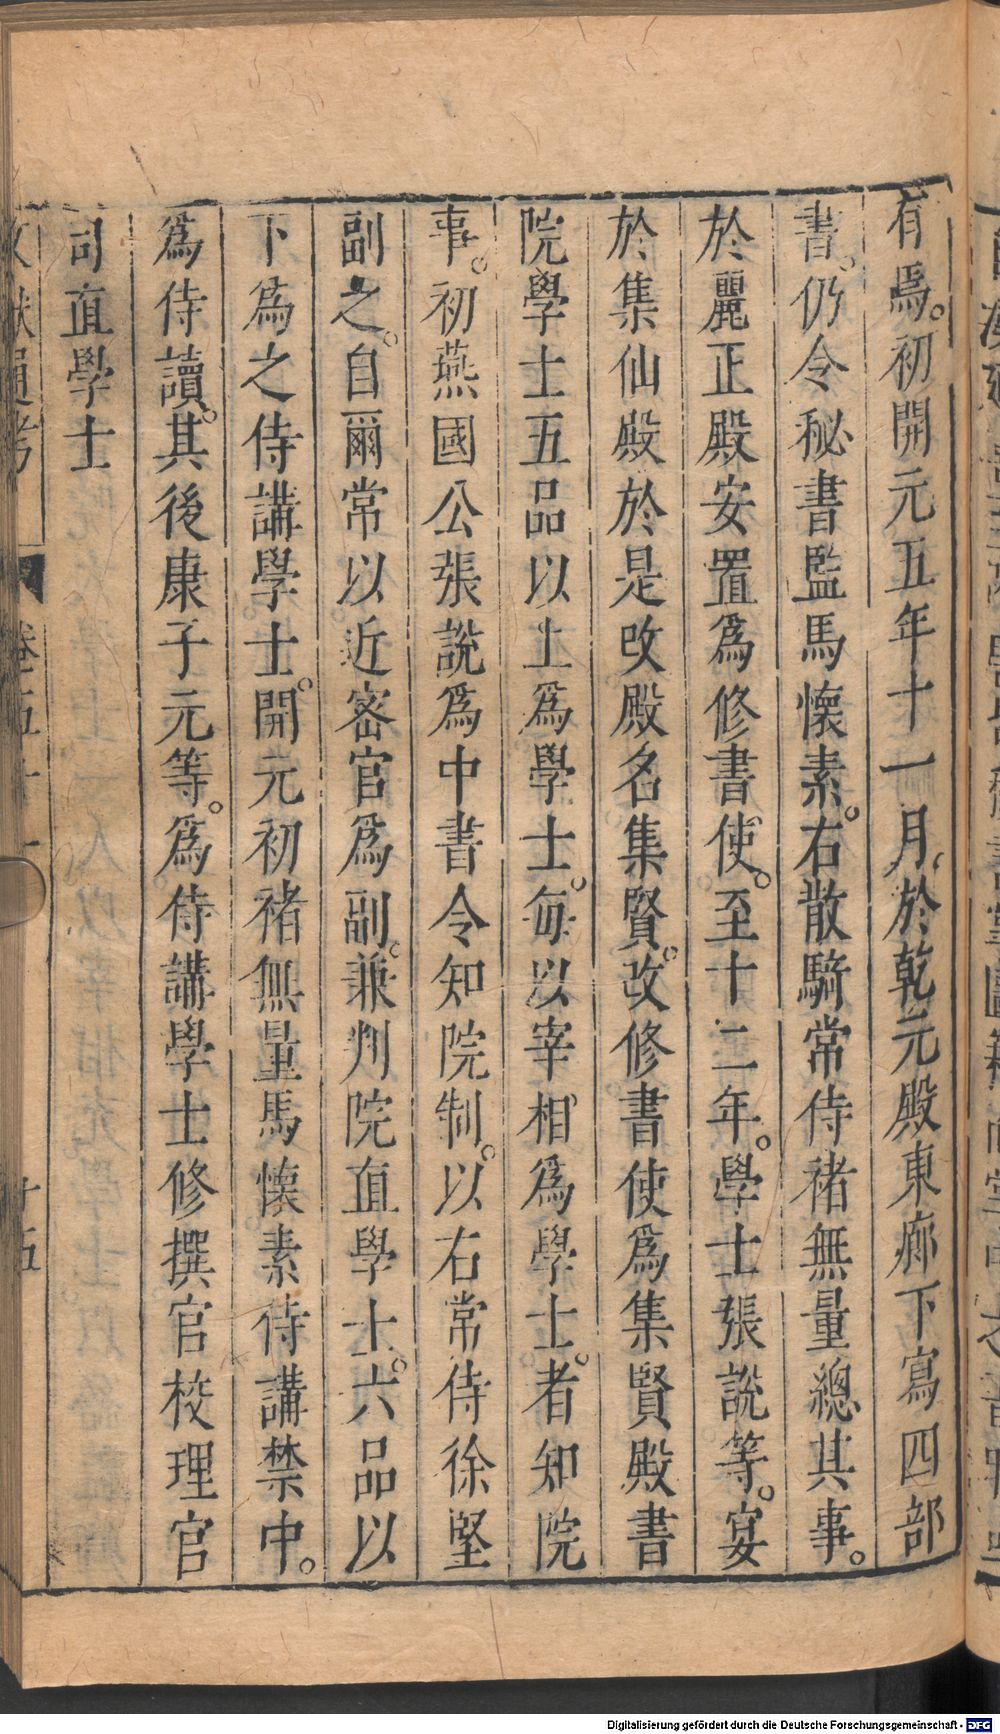 有焉。初開元五年十一月於乾元殿東廊下寫四部
書。仍令秘書監馬懷素。右散騎常侍褚無量總其事。
於麗正殿安置爲修書使。至十二年。學士張說等。宴
於集仙殿於是改殿名集賢。改修書使爲集賢殿書
院學士五品以上爲學士。每以宰相爲學士。者知院
事。初燕國公張說爲中書令知院制。以右常侍徐堅
副之。自爾常以近密官爲副。兼判院直學士。六品以
下爲之侍講學士。開元初褚無量馬懷素侍講禁中。
爲侍讀。其後康子元等。爲侍講學士修撰官校理官
司直學士
文獻通考
Digitalisierung gefördert durch die Deutsche Forschungsgemeinschaft - DFG